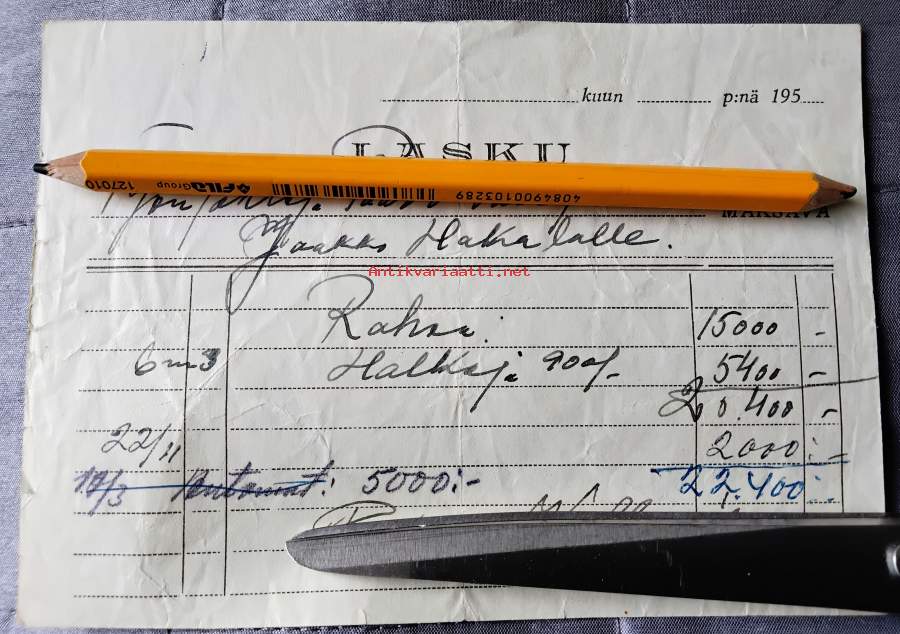 kuun p:nä 195
LASKU
127010 FILA Group 4084900103289
MAKSAVA
Jaakko Hakalalle.
Antikvariaatti.net
Rahaa: 15000 -
6 m3 Halkoj. 900/- 5400 -
20.400 -
22/11 2000:-
5000:- 22.400:-